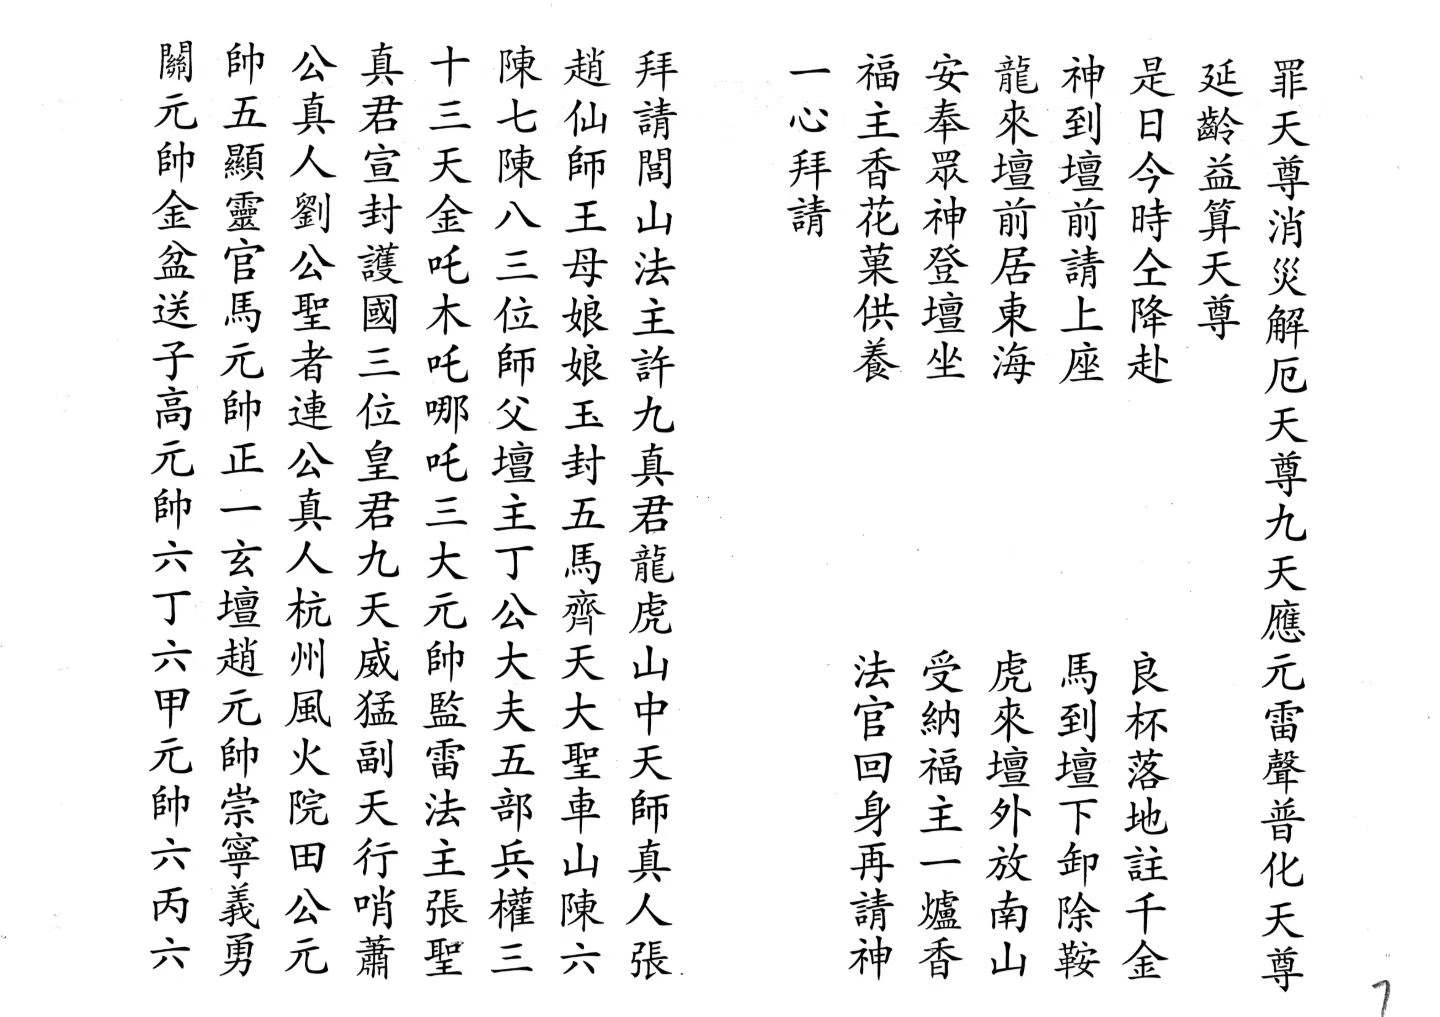 罪天尊消災解厄天尊九天應元雷聲普化天尊
延齡益算天尊
是日今時仝降赴 良杯落地註千金
神到壇前請上座 馬到壇下卸除鞍
龍來壇前居東海 虎來壇外放南山
安奉眾神登壇坐 受納福主一爐香
福主香花菓供養 法官回身再請神
一心拜請
拜請閭山法主許九真君龍虎山中天師真人張
趙仙師王母娘娘玉封五馬齊天大聖車山陳六
陳七陳八三位師父壇主丁公大夫五部兵權三
十三天金吒木吒哪吒三大元帥監雷法主張聖
真君宣封護國三位皇君九天威猛副天行哨蕭
公真人劉公聖者連公真人杭州風火院田公元
帥五顯靈官馬元帥正一玄壇趙元帥崇寧義勇
關元帥金盆送子高元帥六丁六甲元帥六丙六
7